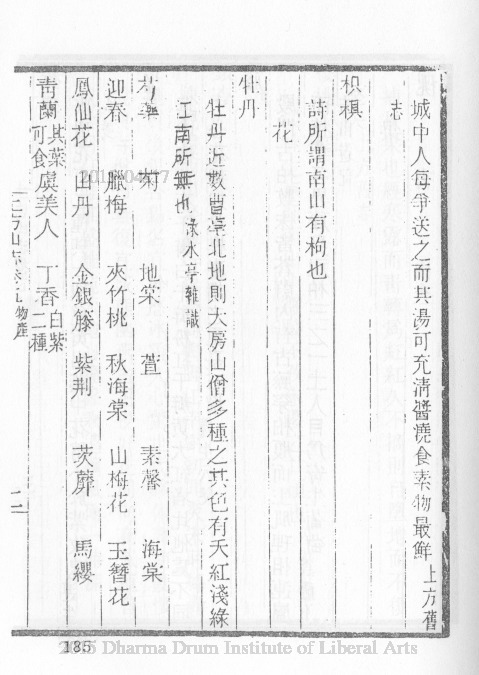 城中人每爭送之而其湯可充淸醬澆食素物最鮮 上方舊
志
枳椇
詩所謂南山有枸也
花
牡丹
牡丹近數曹亳北地則大房山僧多種之其色有天紅淺綠
江南所無也 淥水亭雜識
芍藥 菊 地棠 萱 素馨 海棠
迎春 臘梅 夾竹桃 秋海棠 山梅花 玉簪花
鳳仙花 山丹 金銀籐 紫荆 茨蘼 馬纓
靑蘭 其葉可食 虞美人 丁香 白紫二種
上方山志卷五 物產
185
Dharma Drum Institute of Liberal Arts